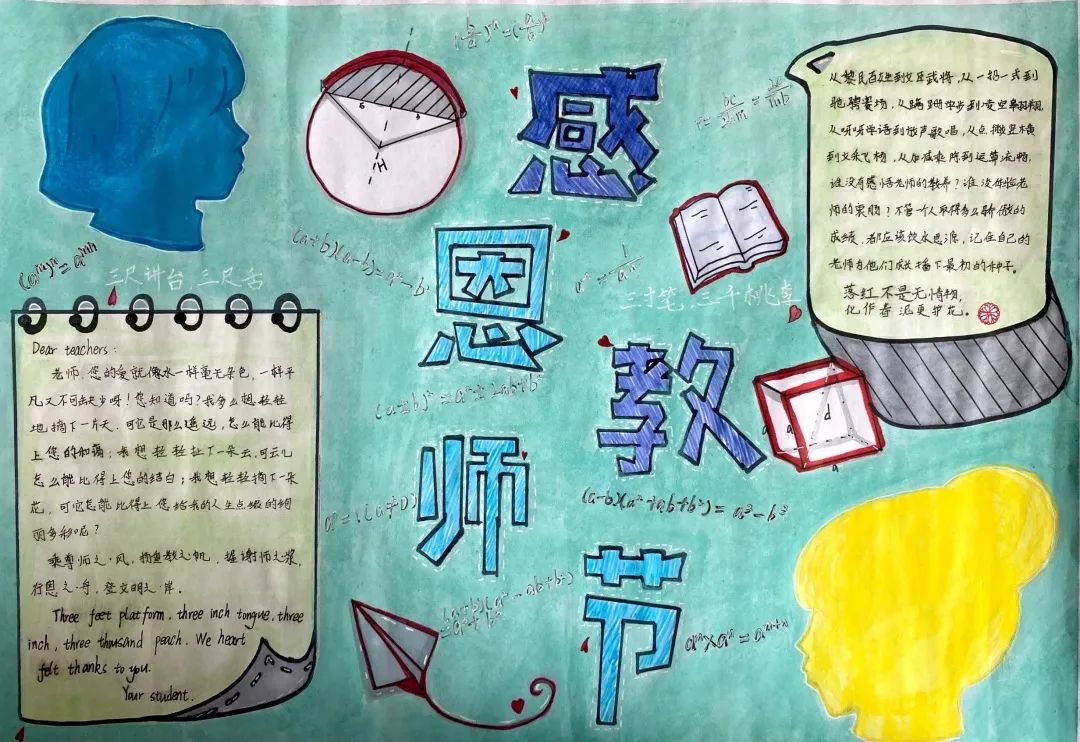 感
恩
师
教
节
三尺讲台,三尺舌
三寸笔,三千桃李
Dear teachers:
老师,您的爱就像水一样毫无杂色,一样平
凡又不可缺少呀!您知道吗?我多么想轻轻
地摘下一片天,可它是那么遥远,怎么能比得
上您的和蔼;我想轻轻扯下一朵云,可云儿
怎么能比得上您的洁白;我想轻轻摘下一朵
花,可它怎能比得上您给我的人生点缀的绚
丽多彩呢?
乘尊师之风,扬重教之帆,握谢师之桨,
行恩之舟,登文明之岸。
Three feet platform, three inch tongue, three
inch, three thousand peach. We heart
felt thanks to you.
Your student.
从黎民百姓到文臣武将,从一招一式到
驰骋赛场,从蹒跚学步到凌空翱翔,
从呀呀学语到放声歌唱,从点撇竖横
到文采飞扬,从加减乘除到运算流畅,
谁没有感悟老师的教养?谁没体验老
师的衷肠?不管一个人取得多么骄傲的
成绩,都应该饮水思源,记住自己的
老师为他们播下最初的种子。
落红不是无情物,
化作春泥更护花。
(a+b)(a-b)=a²-b²
(a±b)²=a²±2ab+b²
(a-b)(a²+ab+b²)=a³-b³
H
d
a
a